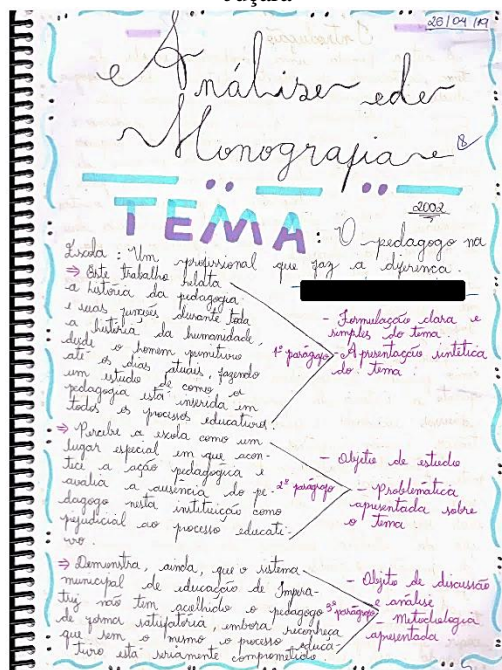 26/04/19
Análise de
Monografia
TEMA: O pedagogo na
2002
Escola: Um profissional que faz a diferença.
⇒ Este trabalho relata
a história da pedagogia
e suas funções durante toda
a história da humanidade,
desde o homem primitivo
até os dias atuais, fazendo
um estudo de como a
pedagogia está inserida em
todos os processos educativos.
1º parágrafo
- Formulação clara e
simples do tema.
- Apresentação sintética
do tema.
⇒ Percebe a escola como um
lugar especial em que acon-
tece a ação pedagógica e
avalia a ausência do pe-
dagogo nesta instituição como
prejudicial ao processo educati-
vo.
2º parágrafo
- Objeto de estudo
- Problemática
apresentada sobre
o tema
⇒ Demonstra, ainda, que o sistema
municipal de educação de Impera-
triz não tem acolhido o pedagogo
de forma satisfatória, embora reconheça
que sem o mesmo o processo educa
tivo está seriamente comprometido
3º parágrafo
- Objeto de discussão
e análise
- Metodologia
apresentada